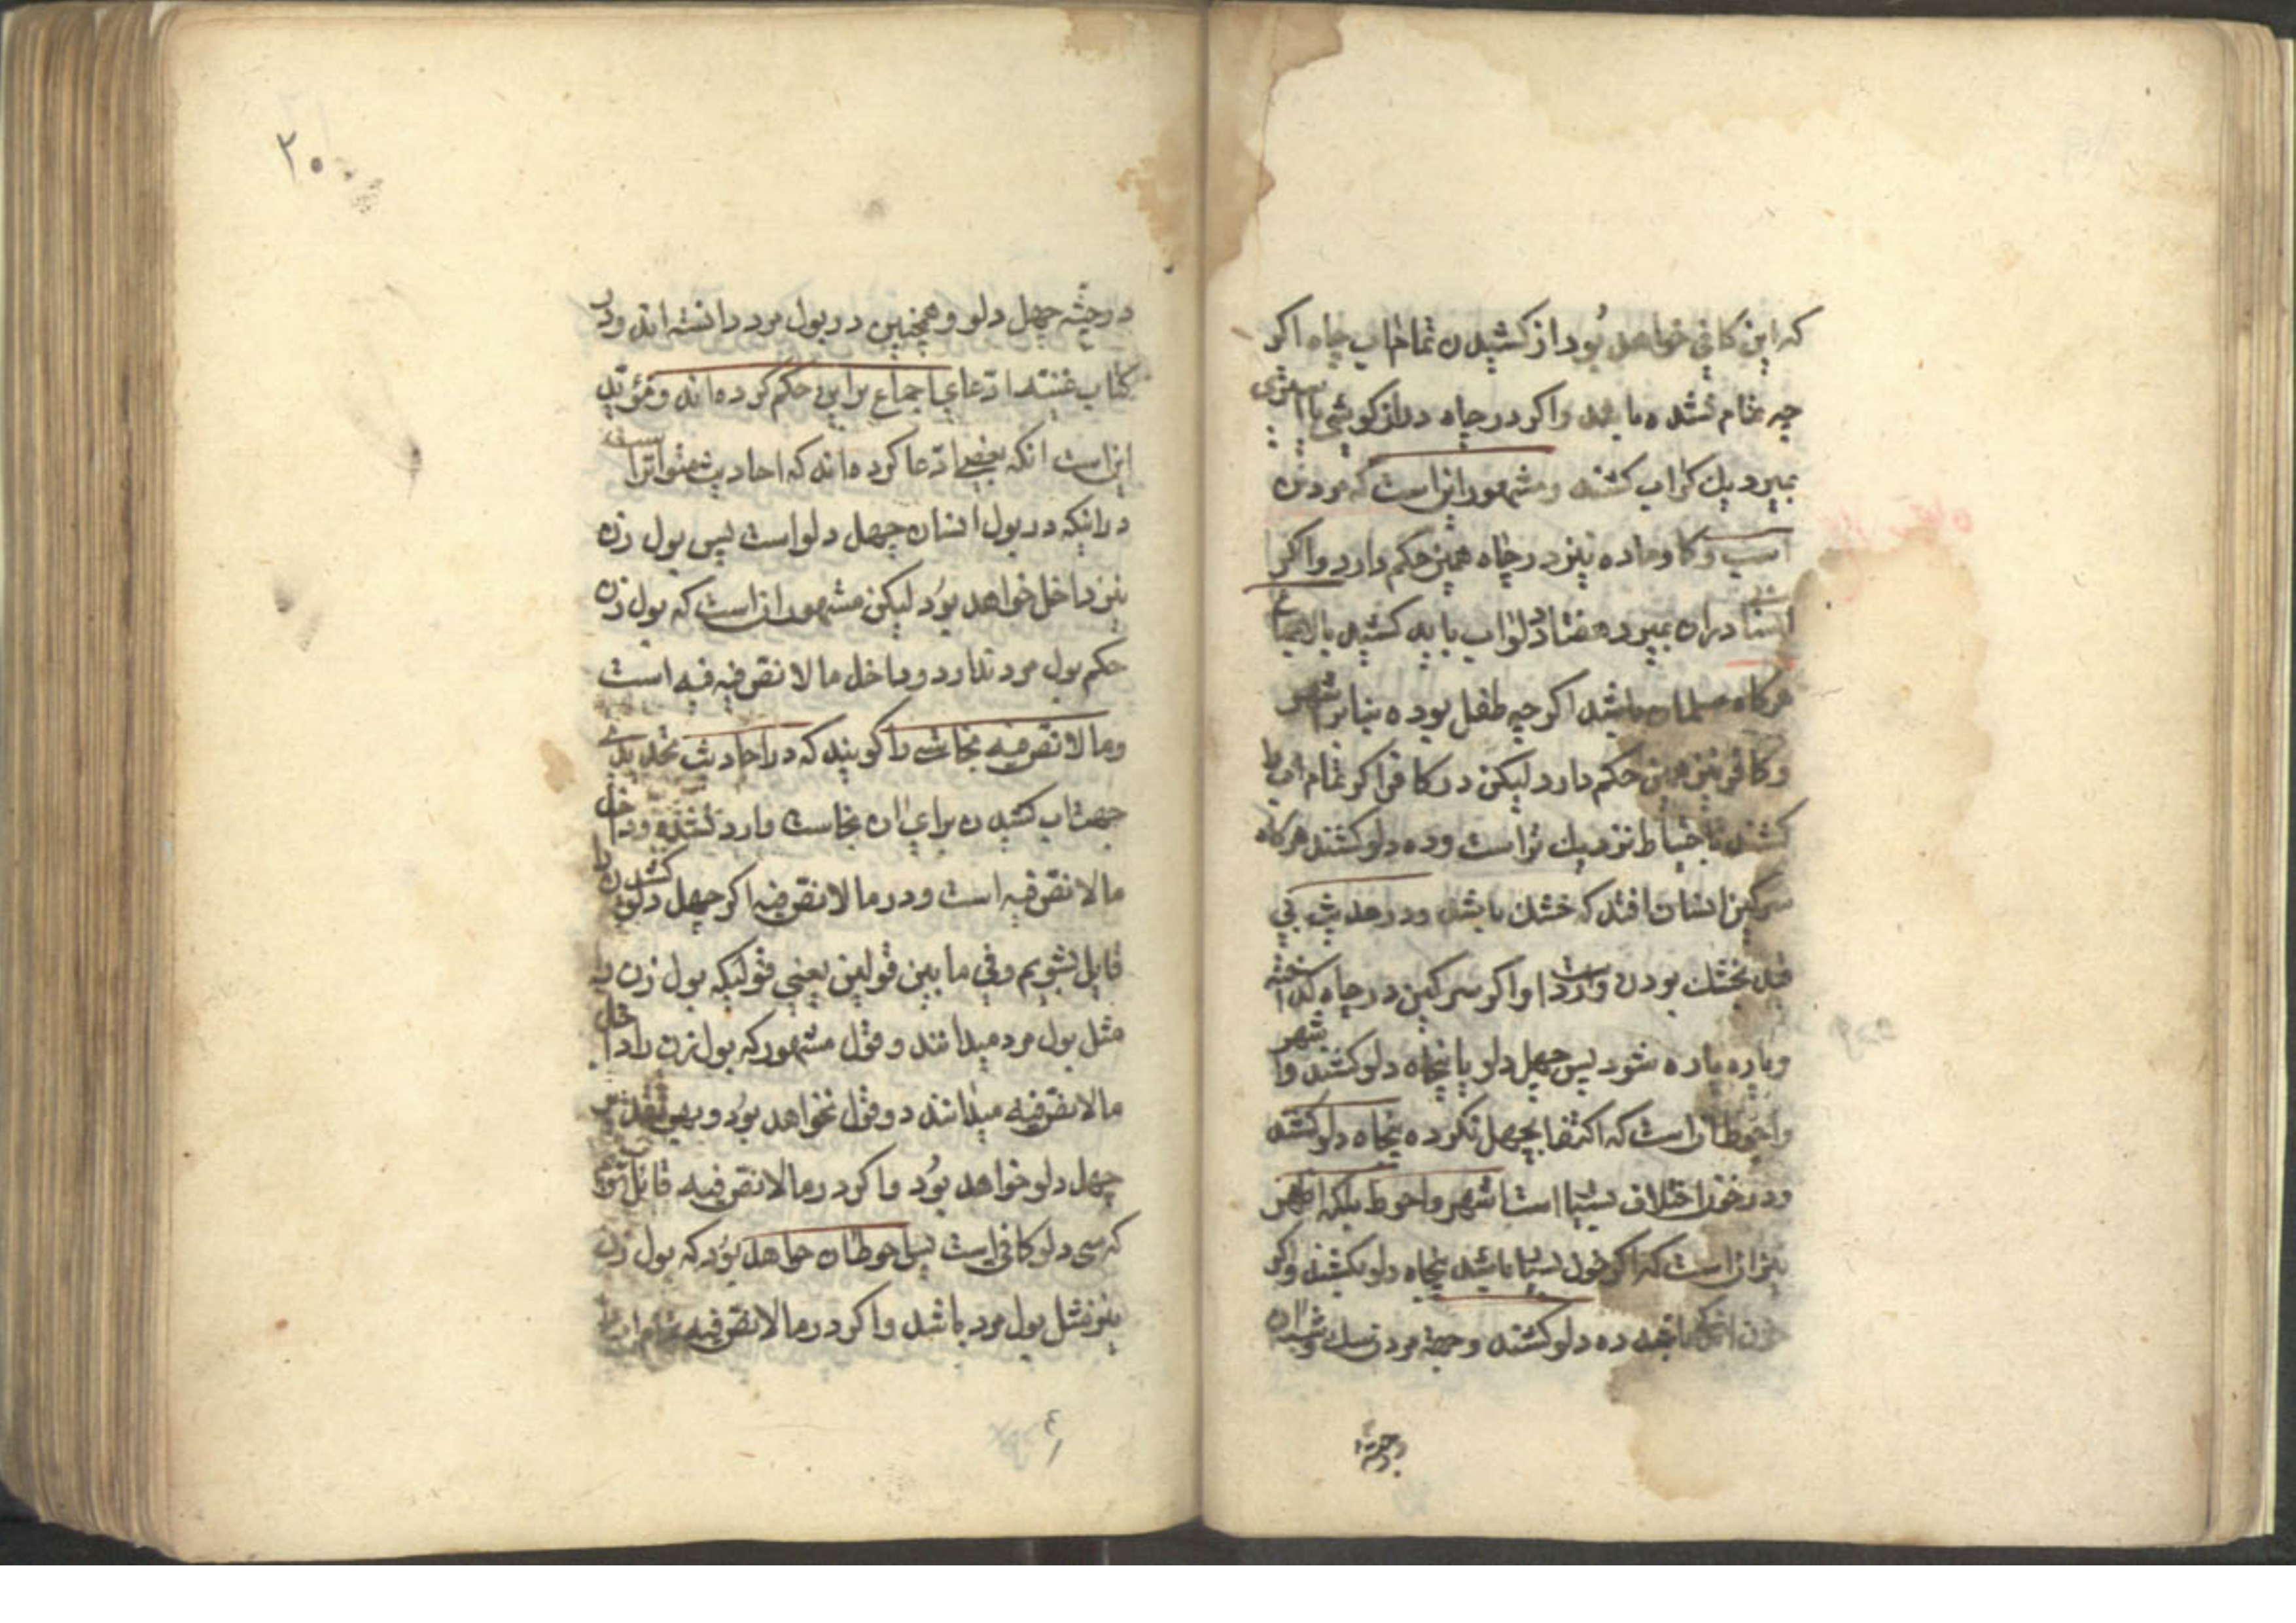 که این کافی خواهد بُود از کشیدن تمام اب چاه اکر
چه تمام نشده باشد واکر در چاه درازکوشی یا استری
بمیرد یك کر اب کشند ومشهور انراست که مردن
اسب وکاو ماده نیز در چاه همین حکم دارد واکر
انسانی دران بمیرد هفتاد دلو اب باید کشید بالاجماع
هرکاه مسلمان باشد اکر چه طفل بوده بنابر اشهر
وکافر نیز همین حکم دارد لیکن در کافر اکر تمام اب را
کشند باحتیاط نزدیك تر است وده دلو کشند هرکاه
سرکین انسان افتد که خشك باشد ودر حدیث بی
قید خشك بودن وارد است واکر سرکین در چاه کداخته
وپاره پاره شود پس چهل دلو یا پنجاه دلو کشند واشهر
واحوط انراست که اکتفا بچهل نکرده پنجاه دلو کشند
ودر خون اختلاف بسیار است اشهر واحوط بلکه اظهر
نیز انراست که اکر خون بسیار باشد پنجاه دلو بکشند واکر
خون اندکی باشد ده دلو کشند وجهة مردن سك وشبه ان
وجهة
۲۰
در جثه چهل دلو وهمچنین در بول مرد دانسته اند ودر
کتاب غنیه ادّعای اجماع براین حکم کرده اند ومؤیّد
این است انکه بعضی ادّعا کرده اند که احادیث متواتر است
در اینکه در بول انسان چهل دلو است پس بول زن
نیز داخل خواهد بُود لیکن مشهور انراست که بول زن
حکم بول مرد ندارد وداخل ما لا نصّ فیه است
وما لا نصّ فیه نجاستی را کویند که در احادیث تحدیدی
جهت اب کشیدن برای ان نجاست وارد نشده وداخل
ما لا نصّ فیه است ودر ما لا نصّ فیه اکر چهل دلو کشیدن را
قایل شویم فرقی ما بین قولین یعنی قولیکه بول زن را
مثل بول مرد میدانند وقول مشهور که بول زن را داخل
ما لا نصّ فیه میدانند دو قول نخواهد بُود وبهر تقدیر
چهل دلو خواهد بُود واکر در ما لا نصّ فیه قایل شویم
که سی دلو کافی است پس احوط ان خواهد بُود که بول زن
نیز مثل بول مرد باشد واکر در ما لا نصّ فیه تمام اب را